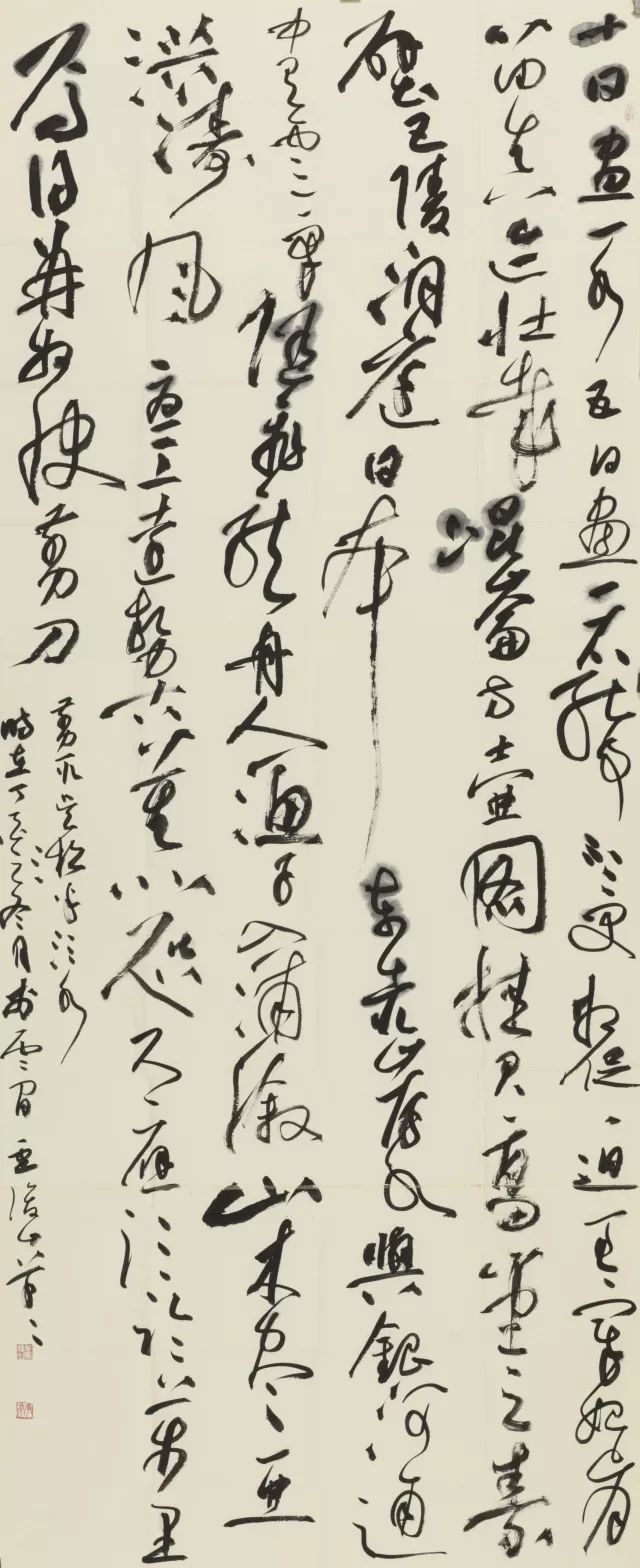 十日畫一水五日畫一石能事不受相促迫王宰始肯
留真迹壯哉混崙方壺圖挂君高堂之素
壁巴陵洞庭日本東赤岸水與銀河通
中有雲氣隨飛龍舟人漁子入浦漵山木盡亞
洪濤風尤工遠勢古莫比咫尺應須論萬里
焉得并州快剪刀
剪取吳松半江水
時在丁 冬月於雲間